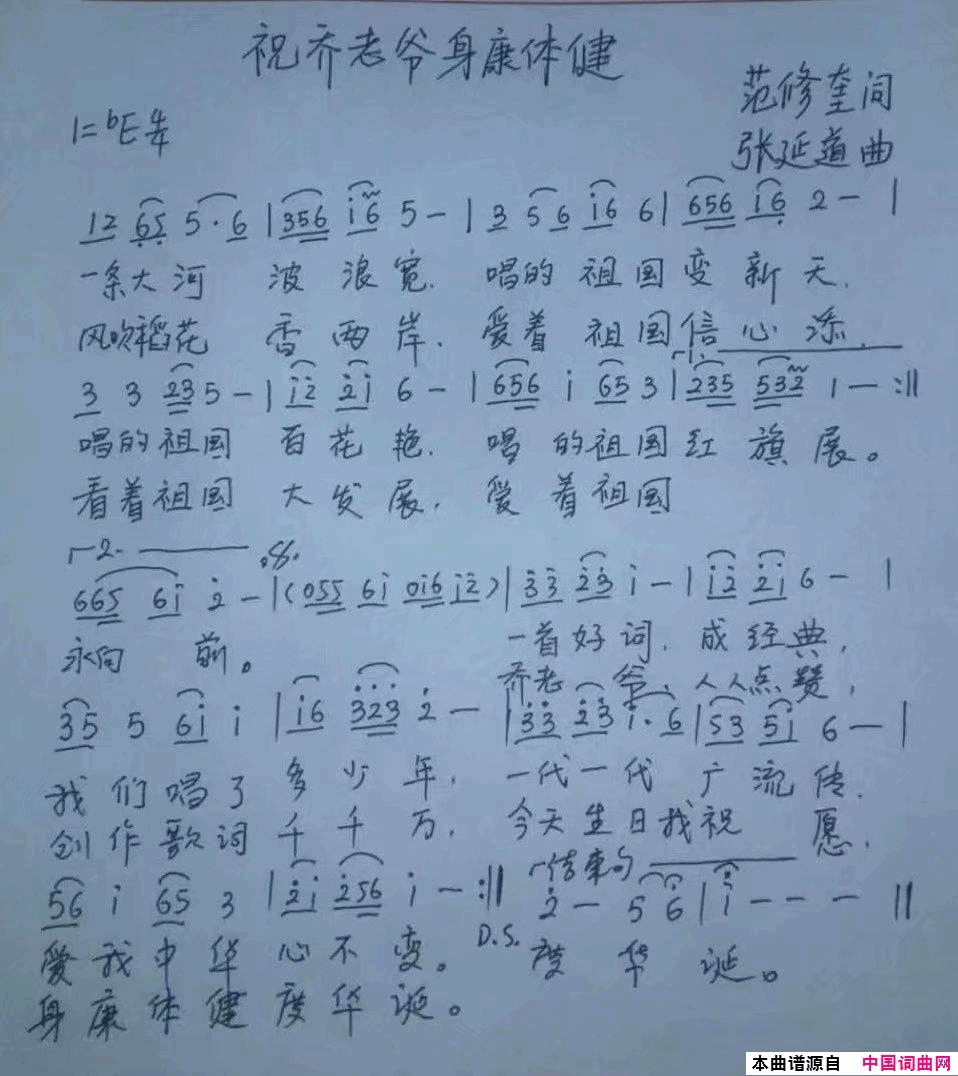 祝乔老爷身康体健
范修奎词
1=bE 4/4
张延道曲
12 65 5·6 |356 i6 5 - | 3 56 i6 6 | 656 i6 2 - |
一条大河 波浪宽. 唱的祖国变新天.
风吹稻花 香两岸. 爱着祖国信心添.
3 3 235 - | i2 2i 6 - | 656 i 65 3 | 235 532 1 - :||
唱的祖国 百花艳. 唱的祖国红旗展。
看着祖国 大发展. 爱着祖国
2.
665 6i 2 - |(055 6i 0i6 i2)| 33 23 i - | i2 2i 6 - |
永向前。 一首好词. 成经典,
乔老爷, 人人点赞,
35 5 6i i | i6 323 2 - | 33 23 i·6 | 53 5i 6 - |
我们唱了多少年, 一代一代广流传.
创作歌词千千万, 今天生日我祝愿,
结束句
56 i 65 3 | 2i 256 i - :|| 2 - 5 6 | i - - - ||
爱我中华心不变。 D.S. 度华诞。
身康体健度华诞。
本曲谱源自 中国词曲网